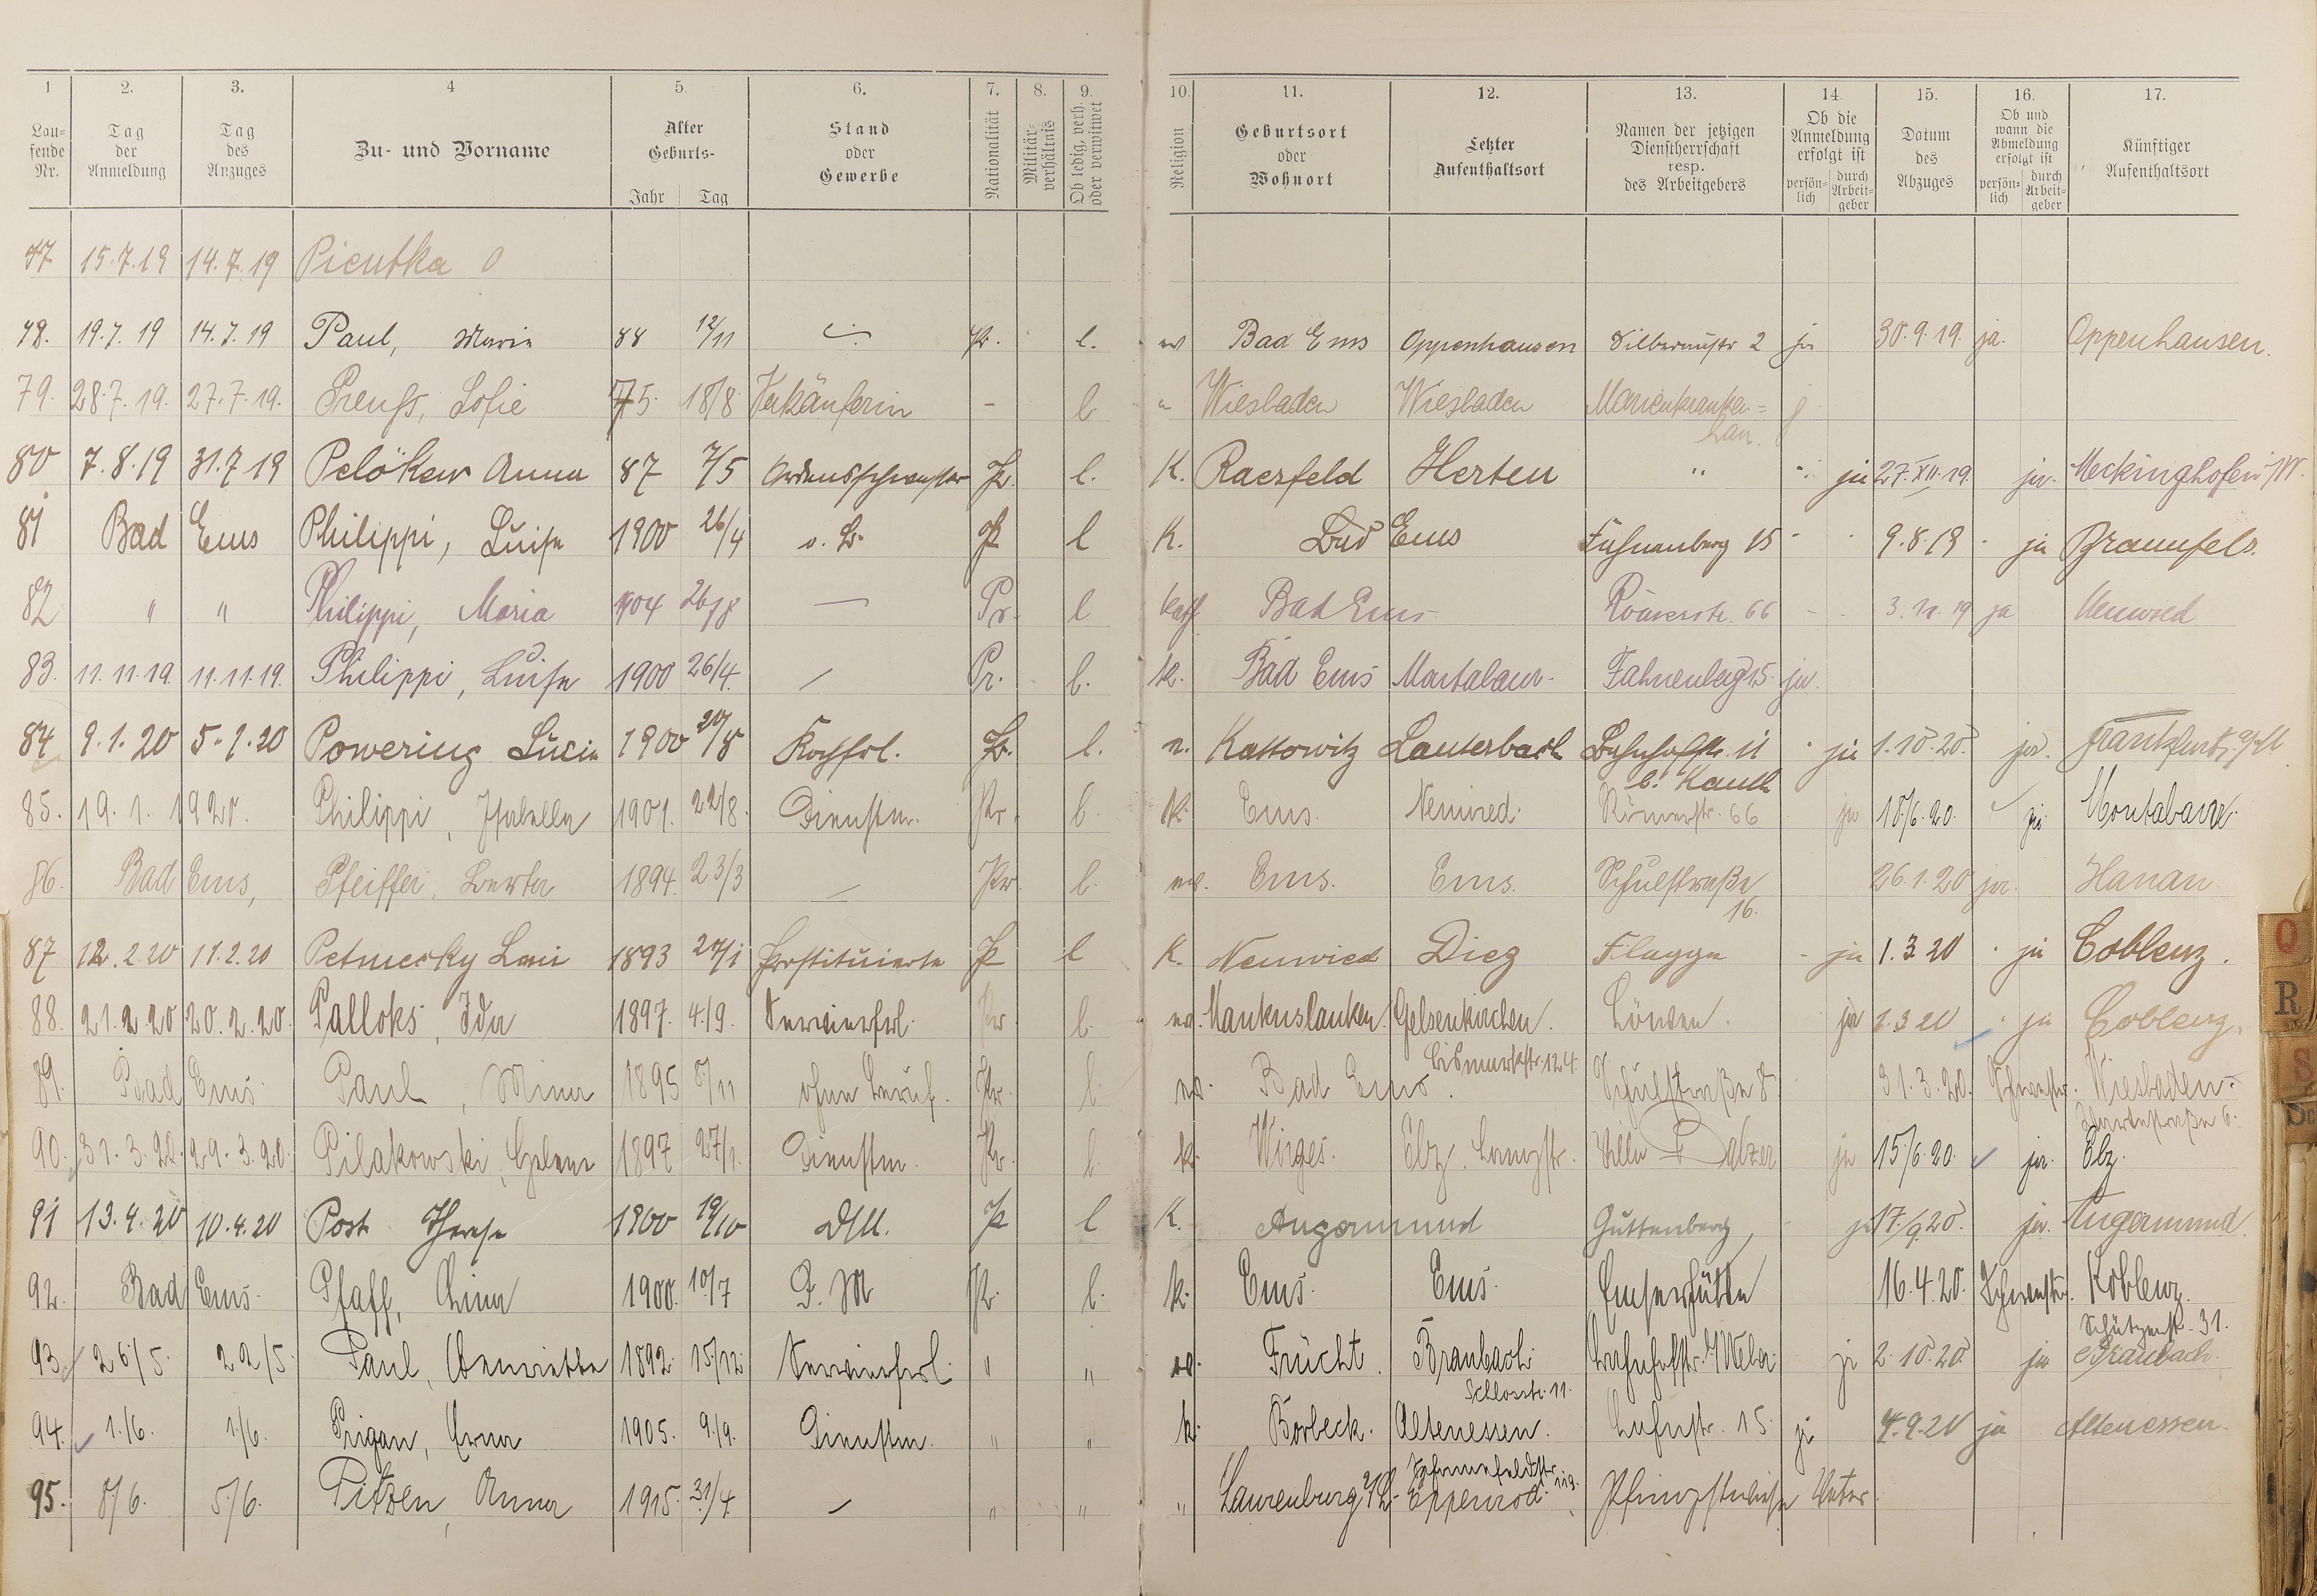 1 2. 3. 4 5. 6. 7. 8. 9. 10. 11. 12. 13. 14. 15. 16. 17.
Lau-
fende
Nr.
Tag
der
Anmeldung
Tag
des
Anzuges
Zu- und Vorname
Alter
Geburts-
Jahr Tag
Stand
oder
Gewerbe
Nationalität
Militär-
verhältnis
Ob ledig, verh.
oder verwitwet
Religion
Geburtsort
oder
Wohnort
Letzter
Aufenthaltsort
Namen der jetzigen
Dienstherrschaft
resp.
des Arbeitgebers
Ob die
Anmeldung
erfolgt ist
persön-
lich
durch
Arbeit-
geber
Datum
des
Abzuges
Ob und
wann die
Abmeldung
erfolgt ist
persön-
lich
durch
Arbeit-
geber
Künftiger
Aufenthaltsort
77 15.7.19 14.7.19 Pientka
78. 19.7.19 14.7.19 Paul, Marie 88 12/11 Pr. l. ev Bad Ems Oppenhausen Silberaustr 2 ja 30.9.19. ja. Oppenhausen.
79. 28.7.19. 27.7.19. Preuß, Sofie 75. 18/8. Verkäuferin - l. " Wiesbaden Wiesbaden Marienkranken=
80 7.8.19 31.7.19 Pelöker Anna 87 7/5 Ordensschwester Pr. l. K. Raesfeld Herten " ja 27.XII.19. ja. Meckinghofen i/W.
81 Bad Ems Philippi, Luise 1900 26/4 o. B. Pr l K. Bad Ems Fahnenberg 15 - 9.8.19 ja Braunfels.
82 " " Philippi, Maria 1904 26/8 — Pr. l kath Bad Ems Römerstr. 66 - - ja Neuwied
83. 11.11.19. 11.11.19. Philippi, Luise 1900 26/4. Pr. l. k. Bad Ems Montabaur. Fahnenberg 15. ja.
84 9.1.20 5.1.20 Powering Lucie 1900 Kochfrl. Pr. l. Kattowitz Lauterbach Bahnhofstr. 11 ja 1.10.20. ja. Frankfurt a/M
b. Kauth
85. 19.1.1920. Philippi, Isabella 1901. 22/8. Dienstm. Pr. l. k. Ems. Neuwied. Römerstr. 66 ja 18/6.20. ja. Montabaur.
86. Bad Ems, Pfeiffer, Berta 1894. 23/3 Pr l. ev. Ems. Ems. Schulstraße 26.1.20 ja. Hanau.
16.
87. 12.2.20 11.2.20 Petmecky 1893 Prostituierte Pr l K. Neuwied Diez Flagge - ja 1.3.20 ja Coblenz.
88. 21.2.20 20.2.20. Palloks, Ida 1897. 4/9. Servierfrl. Pr l. ev. Gelsenkirchen. Löwen. ja 1.3.20 ja Coblenz.
Bismarckstr. 124.
89. Bad Ems. Paul, Mina 1895 ohne Beruf. Pr. l. ev. Bad Ems. Schulstraße 8 31.3.20. Schwester. Wiesbaden.
90. 31.3.20. 29.3.20. Pilakowski, Helene 1897 27/1. Dienstm. Pr. l. k. Wirges. Cbz. Langstr. Villa Balzer ja 15/6.20. ja. Cbz.
91 13.4.20 10.4.20 Post Therese 1900 19/10 D/M. Pr l K. Angermund Guttenberg, ja 17/9.20. ja. Angermund.
92. Bad Ems. Pfaff, Anna 1900. 10/7 D. M Pr. l. k. Ems. Ems. Emserhütte 16.4.20. Schwester. Koblenz.
Schützenstr. 31.
93. 26/5. 22/5. Paul, Henriette 1892. 15/12 Servierfrl. " " ev. Frücht. Braubach. Bahnhofstr. b/Weber. ja 2.10.20. ja Braubach.
Schlosstr. 11.
94. 1./6. 1/6. Prigan, Erna 1905. 9/9. Dienstm. " " k. Borbeck. Altenessen. Lahnstr. 15. ja 4.9.20 ja Altenessen.
95. 8/6. 5/6. Pitzen, Anna 1915. 31/4. " " " Laurenburg a/L. Eppenrod. Pfingstwiese Vater.